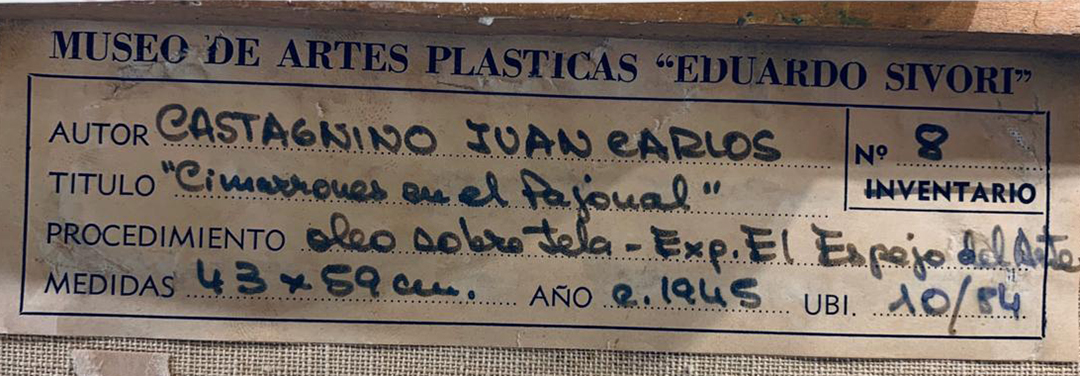 MUSEO DE ARTES PLASTICAS “EDUARDO SIVORI”
AUTOR CASTAGNINO JUAN CARLOS
Nº 8
TITULO "Cimarrones en el Pajonal"
INVENTARIO
PROCEDIMIENTO oleo sobre tela - Exp. El Espejo del Arte
MEDIDAS 43 x 59 cm. AÑO c. 1945 UBI. 10/84